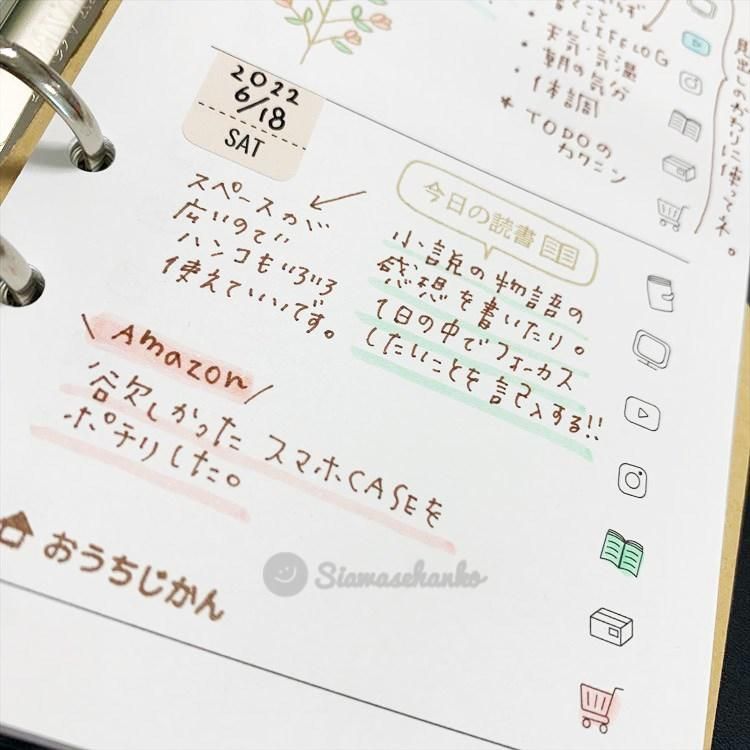 LIFELOG
・天気・気温
・朝の気分
・体調
* TODOの
カクニン
見出しのかわりに使ってネ。
2022
6/18
SAT
スペースが
広いので
ハンコもいろいろ
使えていいです。
今日の読書
小説の物語の
感想を書いたり。
1日の中でフォーカス
したいことを記入する!!
\ Amazon /
欲しかったスマホCASEを
ポチリした。
おうちじかん
Siawasehanko